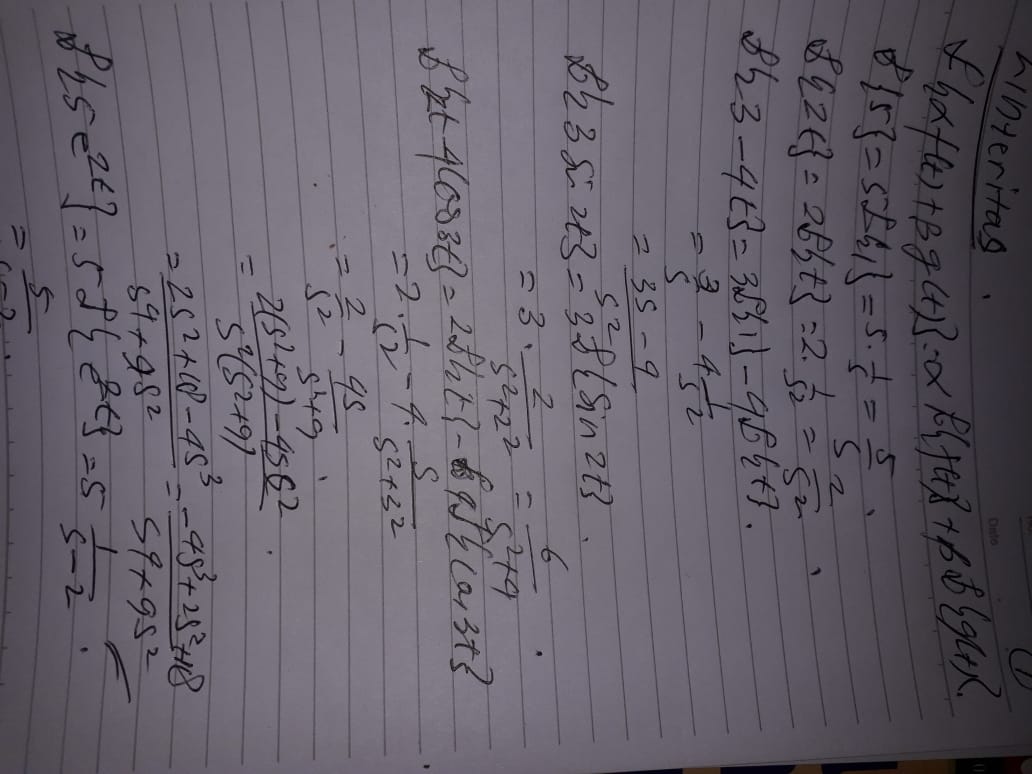 Linieritas.
①
Date
ℒ{αf(t)+βg(t)}=αℒ{f(t)}+βℒ{g(t)}.
ℒ{5}=5ℒ{1}=5·1/s=5/s.
ℒ{2t}=2ℒ{t}=2·1/s²=2/s².
ℒ{3-4t}=3ℒ{1}-4ℒ{t}.
=3/s-4 1/s²
=(3s-4)/s²
ℒ{3 sin 2t}=3ℒ{sin 2t}.
=3·2/(s²+2²)=6/(s²+4).
ℒ{2t-4cos3t}=2ℒ{t}-4ℒ{cos 3t}
=2·1/s²-4·s/(s²+3²)
=2/s²-4s/(s²+9).
=(2(s²+9)-4s s²)/(s²(s²+9)).
=(2s²+18-4s³)/(s⁴+9s²)=(-4s³+2s²+18)/(s⁴+9s²)
ℒ{5e^{2t}}=5ℒ{e^{2t}}=5 1/(s-2).
=5/(s-2).